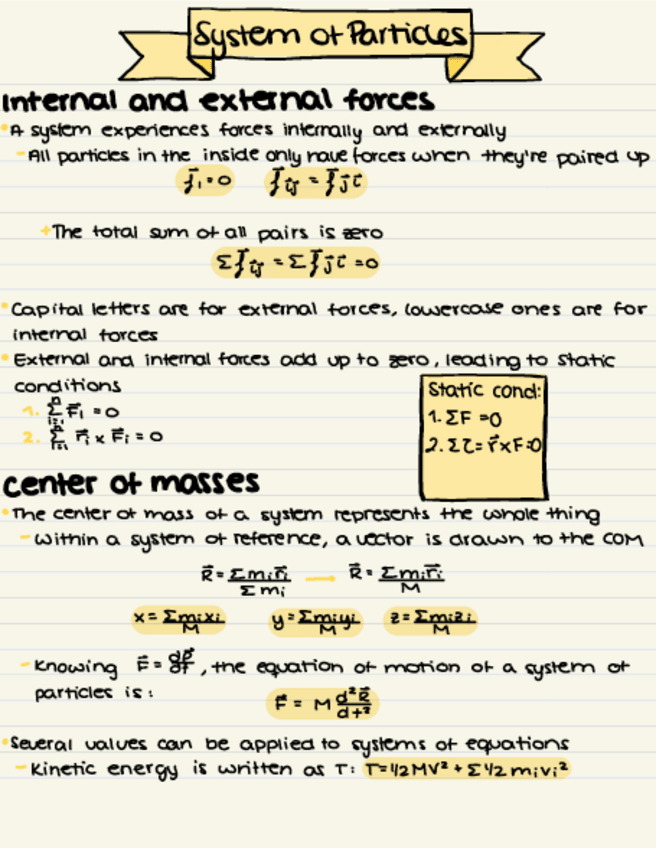 System of Particles
internal and external forces
• A system experiences forces internally and externally
- All particles in the inside only have forces when they're paired up
f⃗i = 0    f⃗ij = f⃗ji
+ The total sum of all pairs is zero
Σf⃗ij = Σf⃗ji = 0
• Capital letters are for external forces, lowercase ones are for
internal forces
• External and internal forces add up to zero, leading to static
conditions
1. Σⁿᵢ₌₁ F⃗i = 0
2. Σⁿᵢ₌₁ r⃗i × F⃗i = 0
Static cond:
1. ΣF = 0
2. Στ = r⃗ × F = 0
center of masses
• The center of mass of a system represents the whole thing
- Within a system of reference, a vector is drawn to the COM
R⃗ = Σmir⃗i / Σmi — R⃗ = Σmir⃗i / M
x = Σmixi / M    y = Σmiyi / M    z = Σmizi / M
- Knowing F⃗ = dp⃗/dt, the equation of motion of a system of
particles is:
F⃗ = M d²R⃗/dt²
• Several values can be applied to systems of equations
- Kinetic energy is written as T: T = 1/2 MV² + Σ 1/2 mivi²